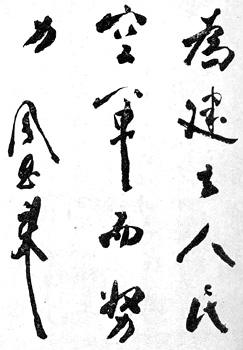 為建立人民
空軍而努
力 周恩来